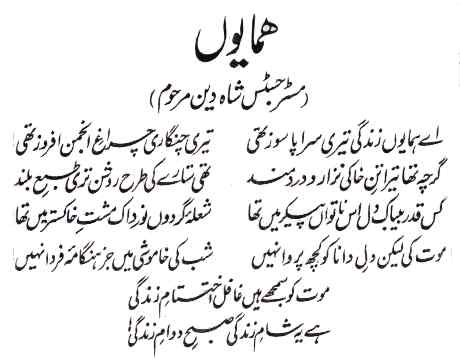 ہمایوں
(مسٹر جسٹس شاہ دین مرحوم)
اے ہمایوں زندگی تیری سراپا سوز تھی تیری چنگاری چراغ انجمن افروز تھی
گرچہ تھا تیرا تنِ خاکی نزار و دردمند تھی ستارے کی طرح روشن تری طبعِ بلند
کس قدر بیباک دل اس ناتواں پیکر میں تھا شعلۂ گردوں نورد اک مشتِ خاکستر میں تھا
موت کی لیکن دلِ دانا کو کچھ پروا نہیں شب کی خاموشی میں جز ہنگامۂ فردا نہیں
موت کو سمجھے ہیں غافل اختتامِ زندگی
ہے یہ شامِ زندگی صبحِ دوامِ زندگی!